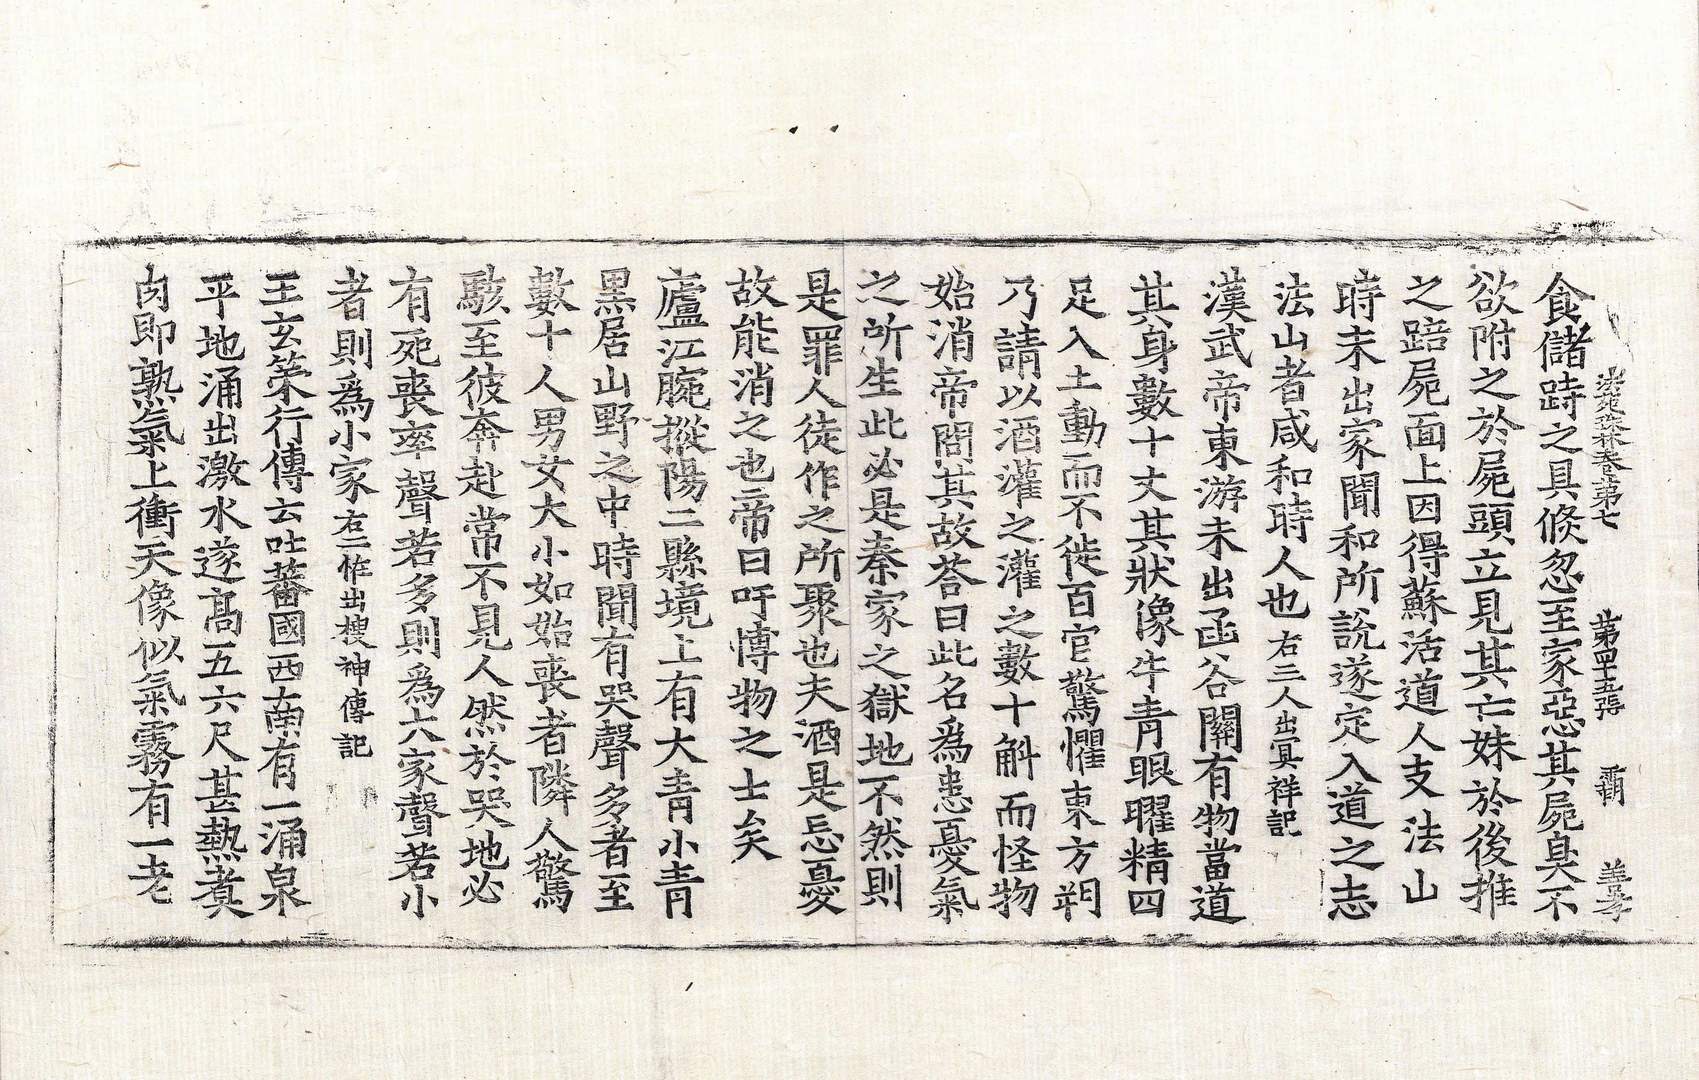 法苑珠林卷第七 第四十五張 覇 盖孝
食儲跱之具倏忽至家惡其屍臭不
欲附之於屍頭立見其亡妹於後推
之踣屍面上因得蘇活道人支法山
時未出家聞和所說遂定入道之志
法山者咸和時人也右三人出冥祥記
漢武帝東游未出函谷關有物當道
其身數十丈其狀像牛青眼曜精四
足入土動而不徙百官驚懼東方朔
乃請以酒灌之灌之數十斛而怪物
始消帝問其故荅曰此名爲恚憂氣
之所生此必是秦家之獄地不然則
是罪人徒作之所聚也夫酒是忘憂
故能消之也帝曰吁慱物之士矣
廬江𦜕摐陽二縣境上有大青小青
黒居山野之中時聞有哭聲多者至
數十人男女大小如始喪者隣人驚
駭至彼奔赴常不見人然於哭地必
有死喪率聲若多則爲大家聲若小
者則爲小家右二恠出搜神傳記
王玄䇿行傳云吐蕃國西南有一涌泉
平地涌出激水遂髙五六尺甚熱煮
肉即熟氣上衝天像似氣霧有一老